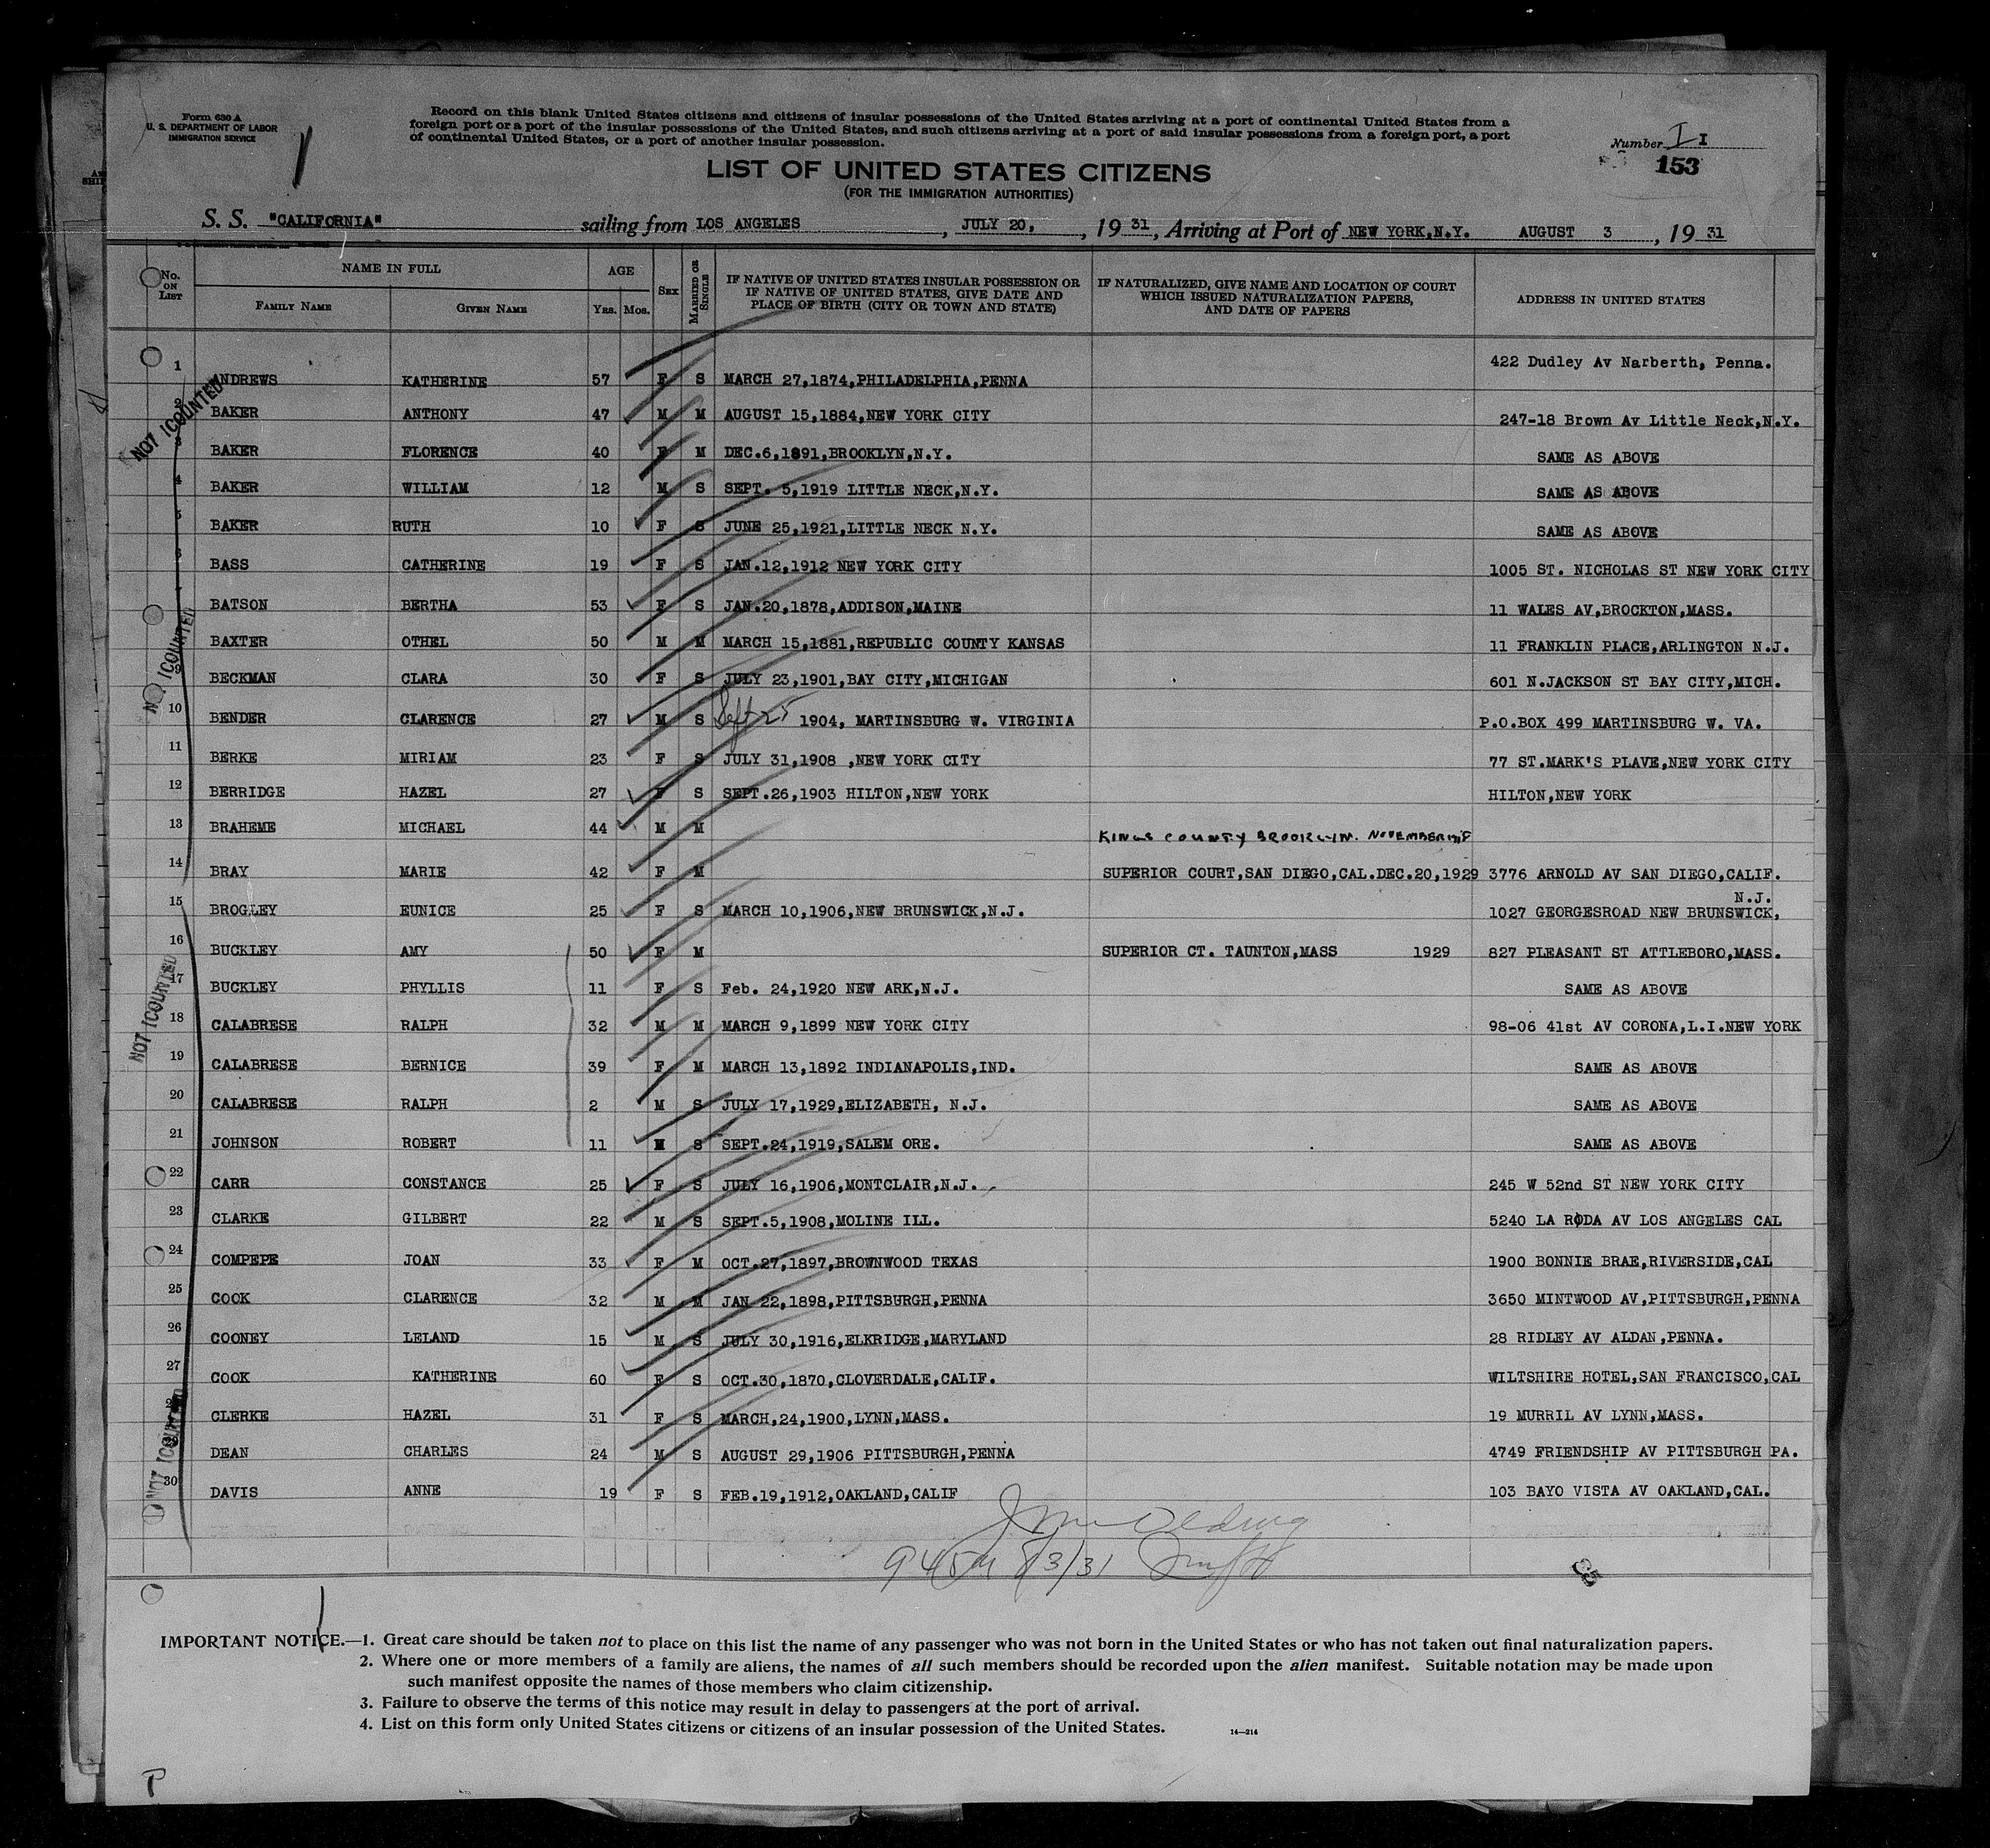 Form 630 A
U. S. DEPARTMENT OF LABOR
IMMIGRATION SERVICE
Record on this blank United States citizens and citizens of insular possessions of the United States arriving at a port of continental United States from a
foreign port or a port of the insular possessions of the United States, and such citizens arriving at a port of said insular possessions from a foreign port, a port
of continental United States, or a port of another insular possession.
Number I I
153
LIST OF UNITED STATES CITIZENS
(FOR THE IMMIGRATION AUTHORITIES)
S. S. "CALIFORNIA" sailing from LOS ANGELES, JULY 20, , 19 31, Arriving at Port of NEW YORK,N.Y. AUGUST 3 , 19 31
No. ON LIST NAME IN FULL FAMILY NAME GIVEN NAME AGE YRS. MOS. SEX MARRIED OR SINGLE IF NATIVE OF UNITED STATES INSULAR POSSESSION OR IF NATIVE OF UNITED STATES, GIVE DATE AND PLACE OF BIRTH (CITY OR TOWN AND STATE) IF NATURALIZED, GIVE NAME AND LOCATION OF COURT WHICH ISSUED NATURALIZATION PAPERS, AND DATE OF PAPERS ADDRESS IN UNITED STATES
1 ANDREWS KATHERINE 57 F S MARCH 27,1874,PHILADELPHIA,PENNA 422 Dudley Av Narberth, Penna.
2 BAKER ANTHONY 47 M M AUGUST 15,1884,NEW YORK CITY 247-18 Brown Av Little Neck,N.Y.
3 BAKER FLORENCE 40 F M DEC.6,1891,BROOKLYN,N.Y. SAME AS ABOVE
4 BAKER WILLIAM 12 M S SEPT. 5,1919 LITTLE NECK,N.Y. SAME AS ABOVE
5 BAKER RUTH 10 F S JUNE 25,1921,LITTLE NECK N.Y. SAME AS ABOVE
6 BASS CATHERINE 19 F S JAN.12,1912 NEW YORK CITY 1005 ST. NICHOLAS ST NEW YORK CITY
BATSON BERTHA 53 F S JAN.20,1878,ADDISON,MAINE 11 WALES AV,BROCKTON,MASS.
BAXTER OTHEL 50 M M MARCH 15,1881,REPUBLIC COUNTY KANSAS 11 FRANKLIN PLACE,ARLINGTON N.J.
9 BECKMAN CLARA 30 F S JULY 23,1901,BAY CITY,MICHIGAN 601 N.JACKSON ST BAY CITY,MICH.
10 BENDER CLARENCE 27 M S Sept 25 1904, MARTINSBURG W. VIRGINIA P.O.BOX 499 MARTINSBURG W. VA.
11 BERKE MIRIAM 23 F S JULY 31,1908 ,NEW YORK CITY 77 ST.MARK'S PLAVE,NEW YORK CITY
12 BERRIDGE HAZEL 27 F S SEPT.26,1903 HILTON,NEW YORK HILTON,NEW YORK
13 BRAHEME MICHAEL 44 M M KINGS COUNTY BROOKLYN. NOVEMBER
14 BRAY MARIE 42 F M SUPERIOR COURT,SAN DIEGO,CAL.DEC.20,1929 3776 ARNOLD AV SAN DIEGO,CALIF.
15 BROGLEY EUNICE 25 F S MARCH 10,1906,NEW BRUNSWICK,N.J. 1027 GEORGESROAD NEW BRUNSWICK, N.J.
16 BUCKLEY AMY 50 F M SUPERIOR CT. TAUNTON,MASS 1929 827 PLEASANT ST ATTLEBORO,MASS.
17 BUCKLEY PHYLLIS 11 F S Feb. 24,1920 NEW ARK,N.J. SAME AS ABOVE
18 CALABRESE RALPH 32 M M MARCH 9,1899 NEW YORK CITY 98-06 41st AV CORONA,L.I.NEW YORK
19 CALABRESE BERNICE 39 F M MARCH 13,1892 INDIANAPOLIS,IND. SAME AS ABOVE
20 CALABRESE RALPH 2 M S JULY 17,1929,ELIZABETH, N.J. SAME AS ABOVE
21 JOHNSON ROBERT 11 M S SEPT.24,1919,SALEM ORE. SAME AS ABOVE
22 CARR CONSTANCE 25 F S JULY 16,1906,MONTCLAIR,N.J. 245 W 52nd ST NEW YORK CITY
23 CLARKE GILBERT 22 M S SEPT.5,1908,MOLINE ILL. 5240 LA RODA AV LOS ANGELES CAL
24 COMPEPE JOAN 33 F M OCT.27,1897,BROWNWOOD TEXAS 1900 BONNIE BRAE,RIVERSIDE,CAL
25 COOK CLARENCE 32 M M JAN 22,1898,PITTSBURGH,PENNA 3650 MINTWOOD AV,PITTSBURGH,PENNA
26 COONEY LELAND 15 M S JULY 30,1916,ELKRIDGE,MARYLAND 28 RIDLEY AV ALDAN,PENNA.
27 COOK KATHERINE 60 F S OCT.30,1870,CLOVERDALE,CALIF. WILTSHIRE HOTEL,SAN FRANCISCO,CAL
CLERKE HAZEL 31 F S MARCH,24,1900,LYNN,MASS. 19 MURRIL AV LYNN,MASS.
DEAN CHARLES 24 M S AUGUST 29,1906 PITTSBURGH,PENNA 4749 FRIENDSHIP AV PITTSBURGH PA.
30 DAVIS ANNE 19 F S FEB.19,1912,OAKLAND,CALIF 103 BAYO VISTA AV OAKLAND,CAL.
NOT COUNTED
NOT COUNTED
NOT COUNTED
8/3/31
IMPORTANT NOTICE.—1. Great care should be taken not to place on this list the name of any passenger who was not born in the United States or who has not taken out final naturalization papers.
2. Where one or more members of a family are aliens, the names of all such members should be recorded upon the alien manifest. Suitable notation may be made upon
such manifest opposite the names of those members who claim citizenship.
3. Failure to observe the terms of this notice may result in delay to passengers at the port of arrival.
4. List on this form only United States citizens or citizens of an insular possession of the United States.
14—214
P